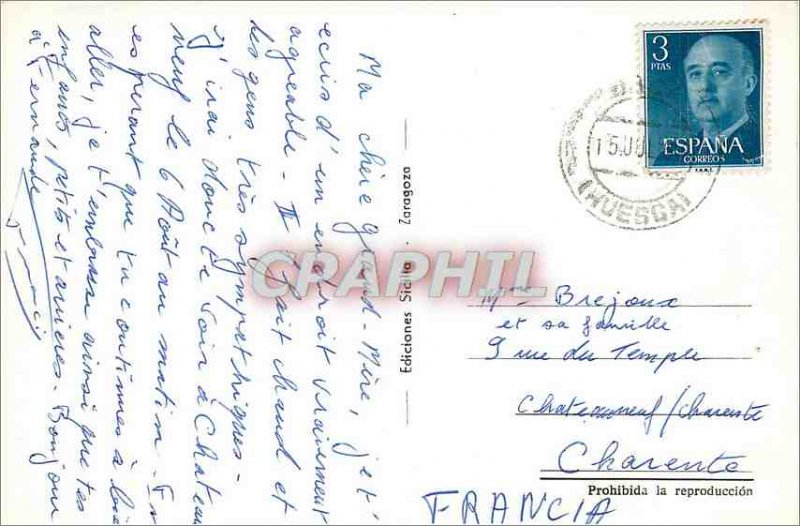 Ma chère grand-Mère, je t'
ecris d'un endroit vraiement
agreable - Il fait chaud et
des gens très sympathiques -
J'irai donc te voir à Chateau
neuf le 6 Août au matin. En
esperant que tu continues à bien
aller, je t'embrasse ainsi que tes
enfants, petits et arrières. Bonjour
à Fernande
Francis
Ediciones Sicilia - Zaragoza
CRAPHIL
3
PTAS
ESPAÑA
CORREOS
15 JUL
(HUESCA)
Mme Brejoux
et sa famille
9 rue du Temple
Chateauneuf/charente
Charente
Prohibida la reproducción
FRANCIA